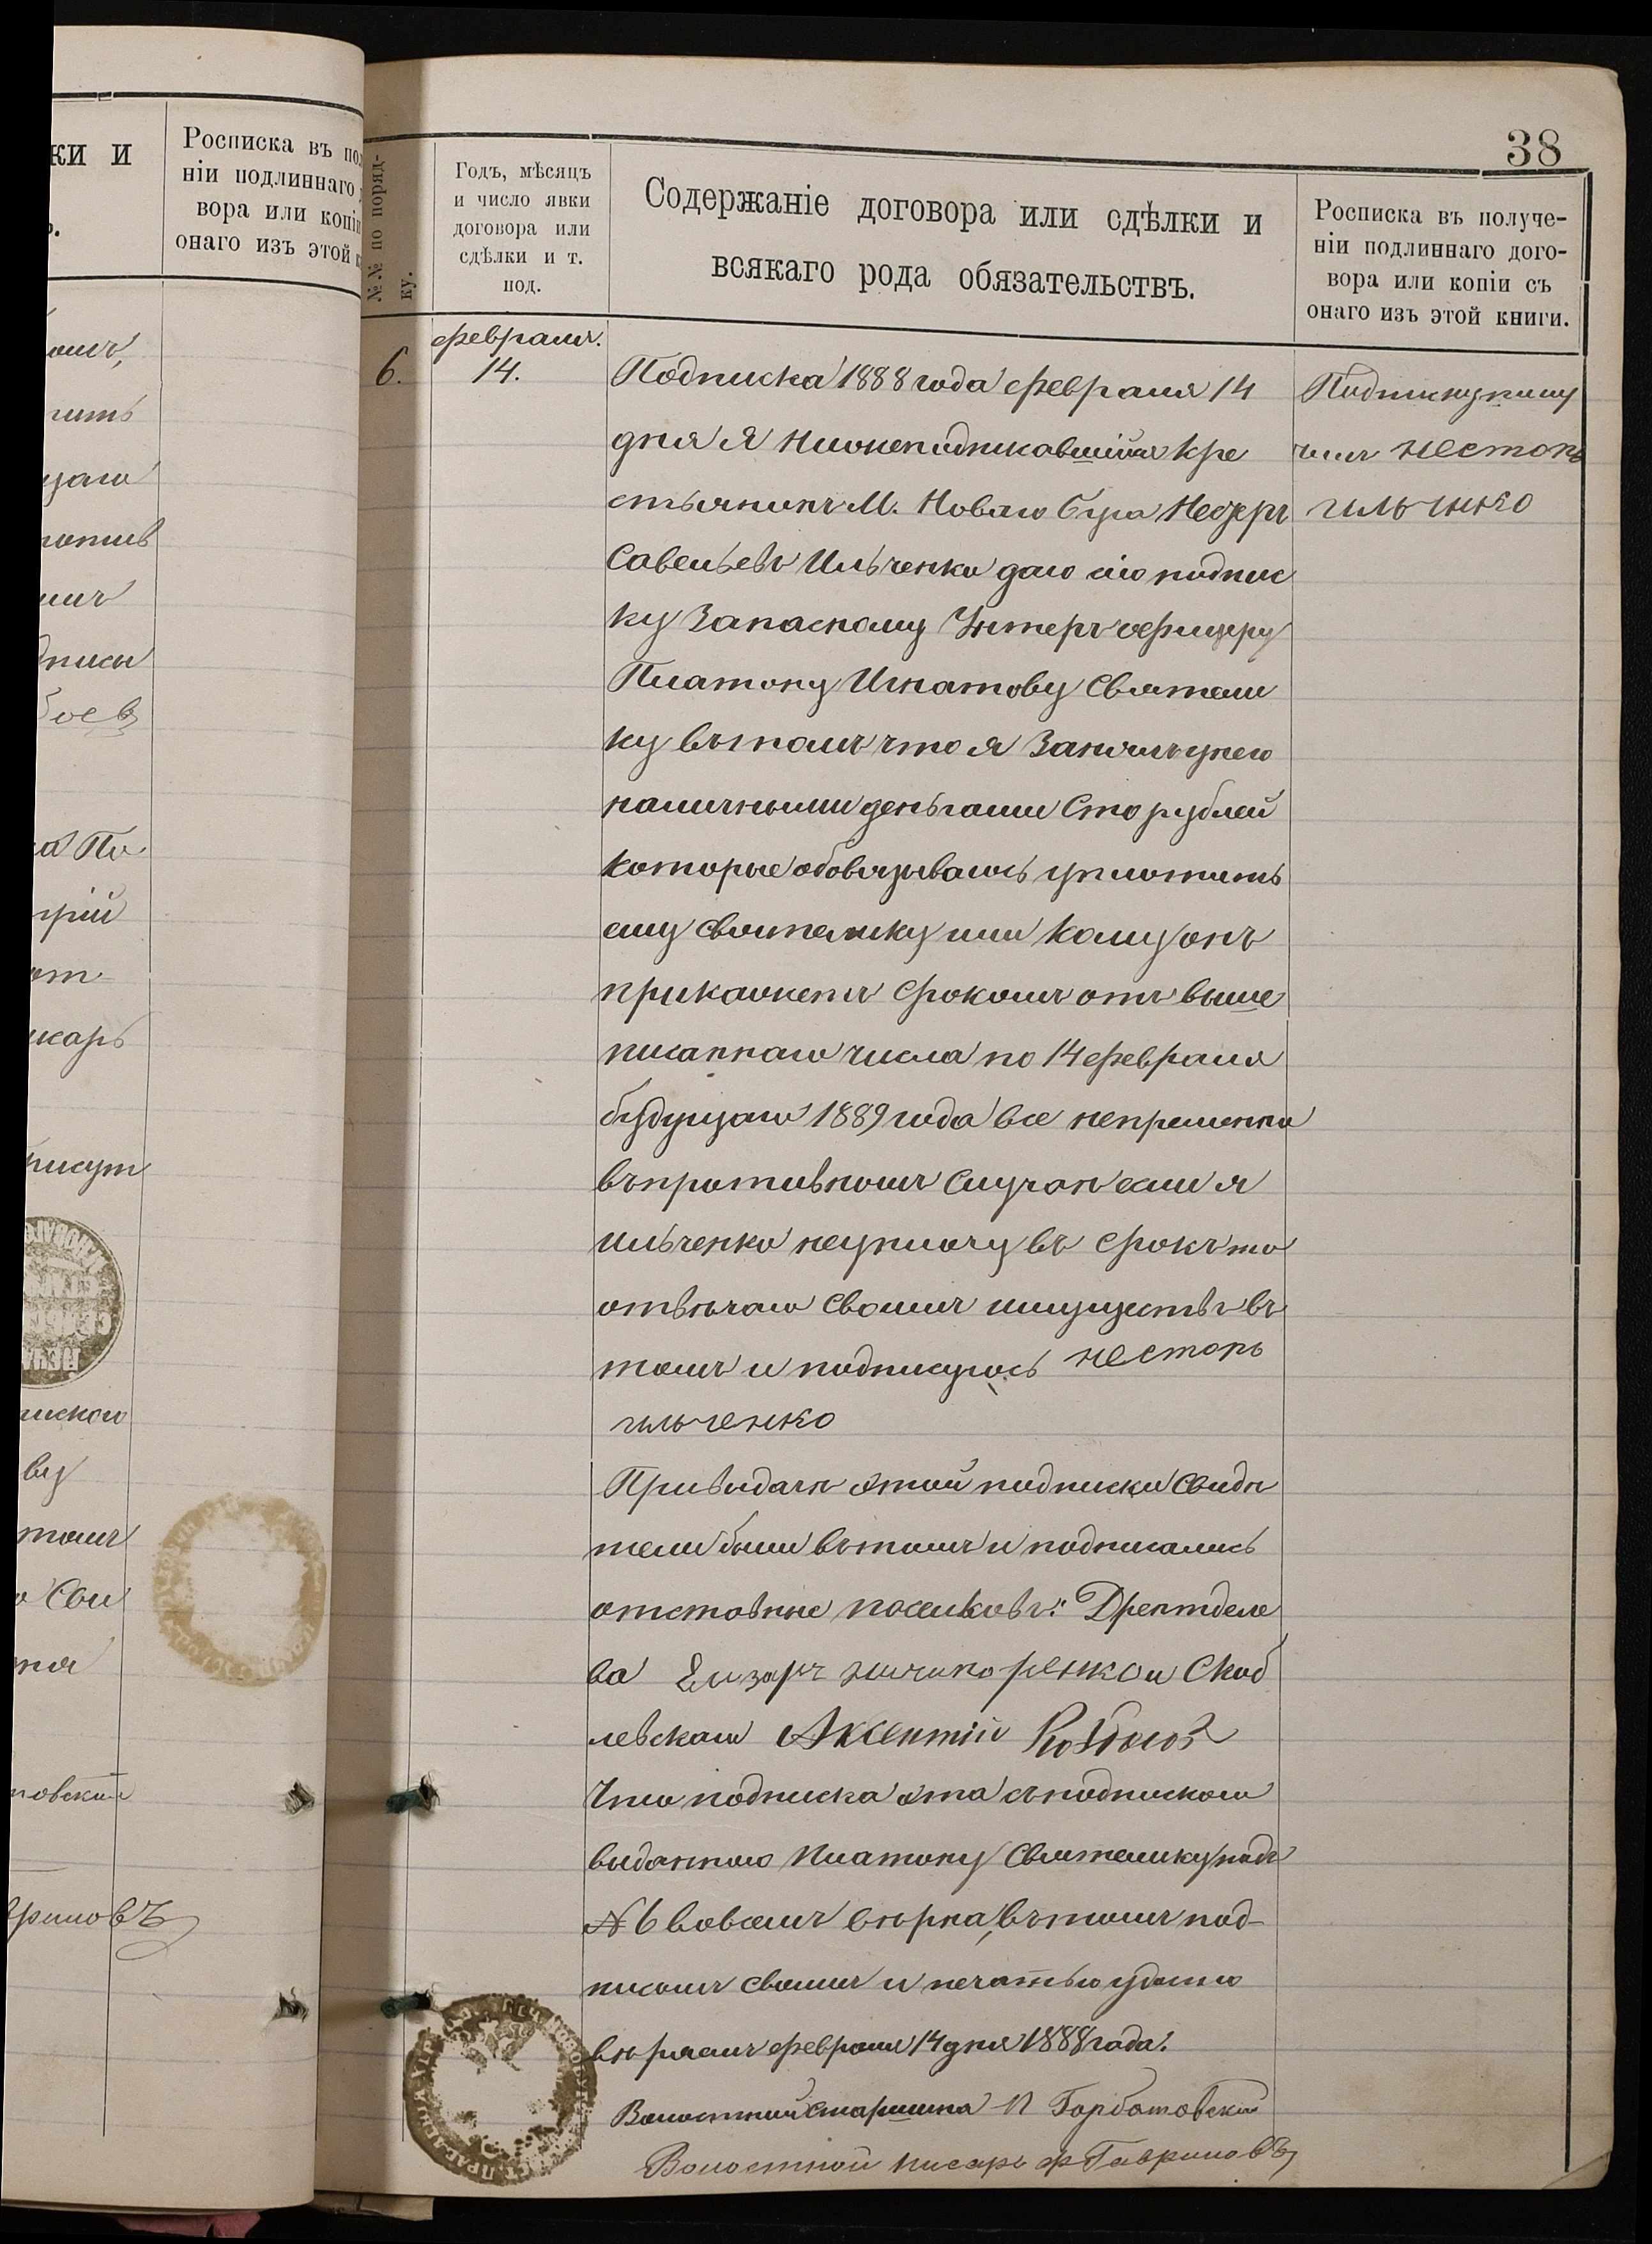 ки и
Росписка въ пол
ніи подлиннаго
вора или копіи
онаго изъ этой к
омъ,
тить
писы
а По
ом
писут
ву
томъ
о Сви
новский
38
№№ по поряд-
ку.
Годъ, мѣсяцъ
и число явки
договора или
сдѣлки и т.
под.
Содержаніе договора или сдѣлки и
всякаго рода обязательствъ.
Росписка въ получе-
ніи подлиннаго дого-
вора или копіи съ
онаго изъ этой книги.
февраля.
6.
14.
Подписка 1888 года февраля 14
дня Я нижеподписавшійся кре
стьянинъ М. Новаго Буга Несторъ
Савельевъ Ильченко даю сію подпис
ку Запасному Унтеръ офицеру
Платону Игнатову Святели
ку въ томъ что я Занялъ у него
наличными деньгами Сто рублей
которые обовязываюсь уплотить
ему Святелику или кому онъ
прикажетъ срокомъ отъ выше
писаннаго числа по 14 февраля
будущаго 1889 года все непременно
въ противномъ случаѣ если я
Ильченко неуплачу въ срокъ то
отвѣчаю своимъ имуществъ въ
томъ и подписуюсь несторь
ильченко
При выдачѣ этой подписки Свидѣ
тели были въ томъ и подписались
отставные поселковъ: Дрентеле
ва Елизаръ ничипоренко и Скоб
левскаго Аксентій
Что подписка эта съ подпискою
выданною Платону Святелику подъ
№ 6 вовсемъ вѣрна, въ томъ под-
писомъ своимъ и печатью удосто
вѣряемъ февраля 14 дня 1888 года.
Волостной старшина П Горбатовский
Волостной писарь Ф Гавриловъ
Подписку получилъ
несторь
ильченко